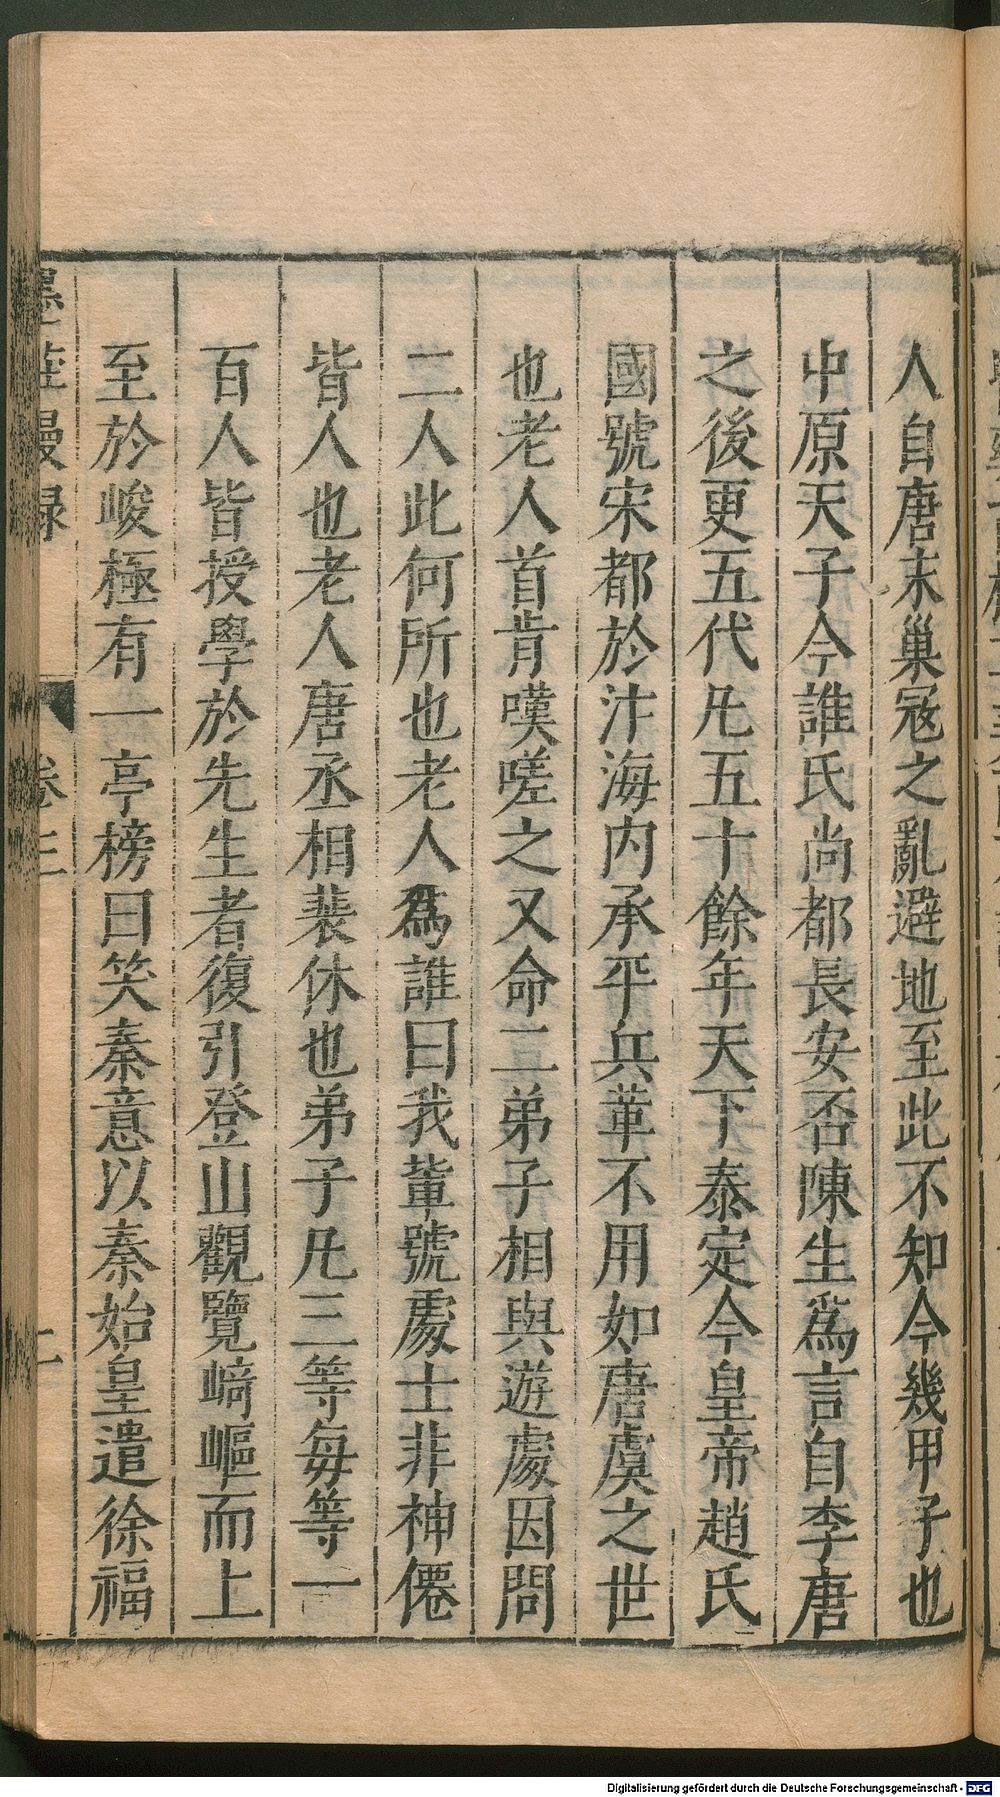 人自唐末巢冦之亂避地至此不知今幾甲子也
中原天子今誰氏尚都長安否陳生爲言自李唐
之後更五代凡五十餘年天下泰定今皇帝趙氏
國號宋都於汴海内承平兵革不用如唐虞之世
也老人首肯嘆嗟之又命二弟子相與遊處因問
二人此何所也老人爲誰曰我輩號處士非神僊
皆人也老人唐丞相裴休也弟子凡三等每等一
百人皆授學於先生者復引登山觀覽崎嶇而上
至於峻極有一亭榜曰笑秦意以秦始皇遣徐福
墨莊漫録 卷三 二
Digitalisierung gefördert durch die Deutsche Forschungsgemeinschaft - DFG